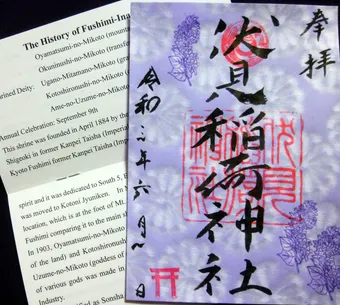 The History of Fushimi-Ina
Oyamatsumi-no-Mikoto (mount
Okunimushi-no-Mikoto (transfe
rined Deity: Ugano-Mitamano-Mikoto (gra
Kotoshironushi-no-Mikoto
Ame-no-Uzume-no-Mikoto
Annual Celebration: September 9th
This shrine was founded in April 1884 by the
Shigeoki in former Kanpei Taisha (Imperia
Kyoto Fushimi former Kanpei Taisha (Imp
spirit and it was dedicated to South 5,
was moved to Kotoni Jyuniken. In
location, which is at the foot of Mt.
Fushimi comparing it to the main sh
In 1903, Oyamatsumi-no-Mikoto
of the land) and Kotoshironushi
Uzume-no-Mikoto (goddess of
of various gods was made in
Industry.
as
奉拝
伏見稲荷神社
令和 年六月 日